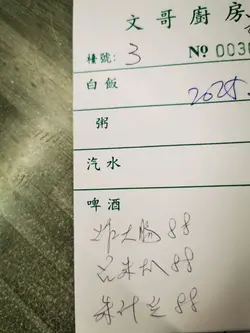 文哥廚房
檯號: 3 Nº 003
白飯 2025.
粥
汽水
啤酒
炸大肠 88
88
88